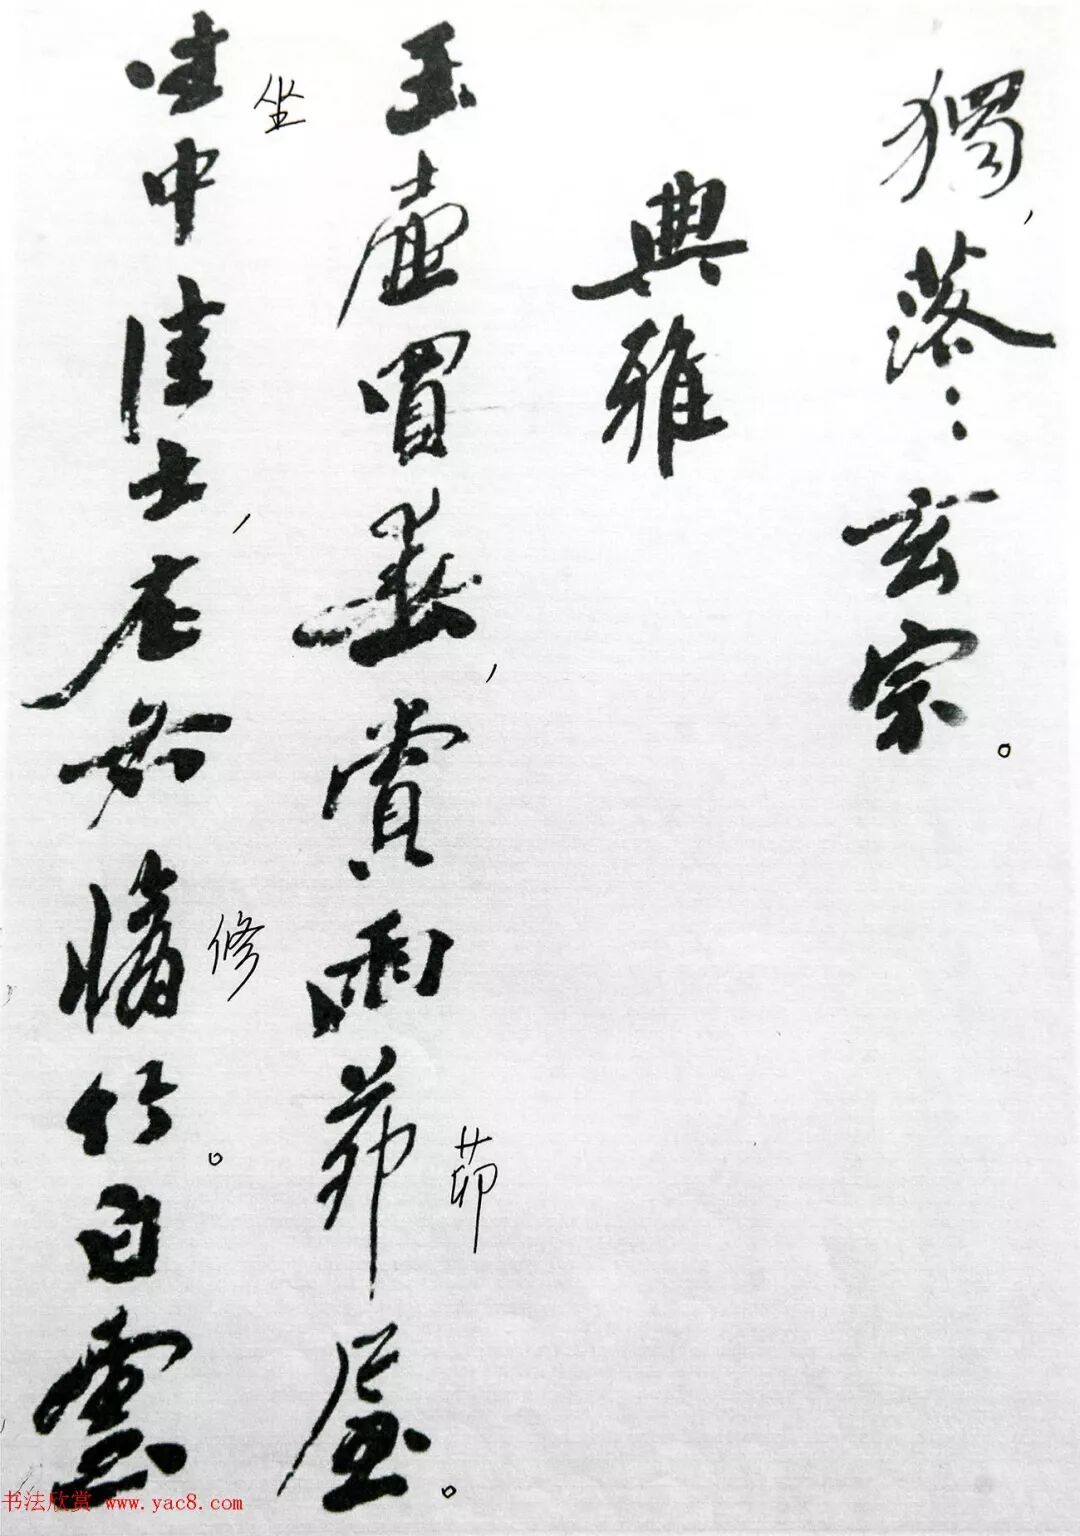 獨，落落玄宗。
典雅
玉壺買春，賞雨茆屋。
茆
坐中佳士，左右脩竹。白雲
坐
修
书法欣赏 www.yac8.com